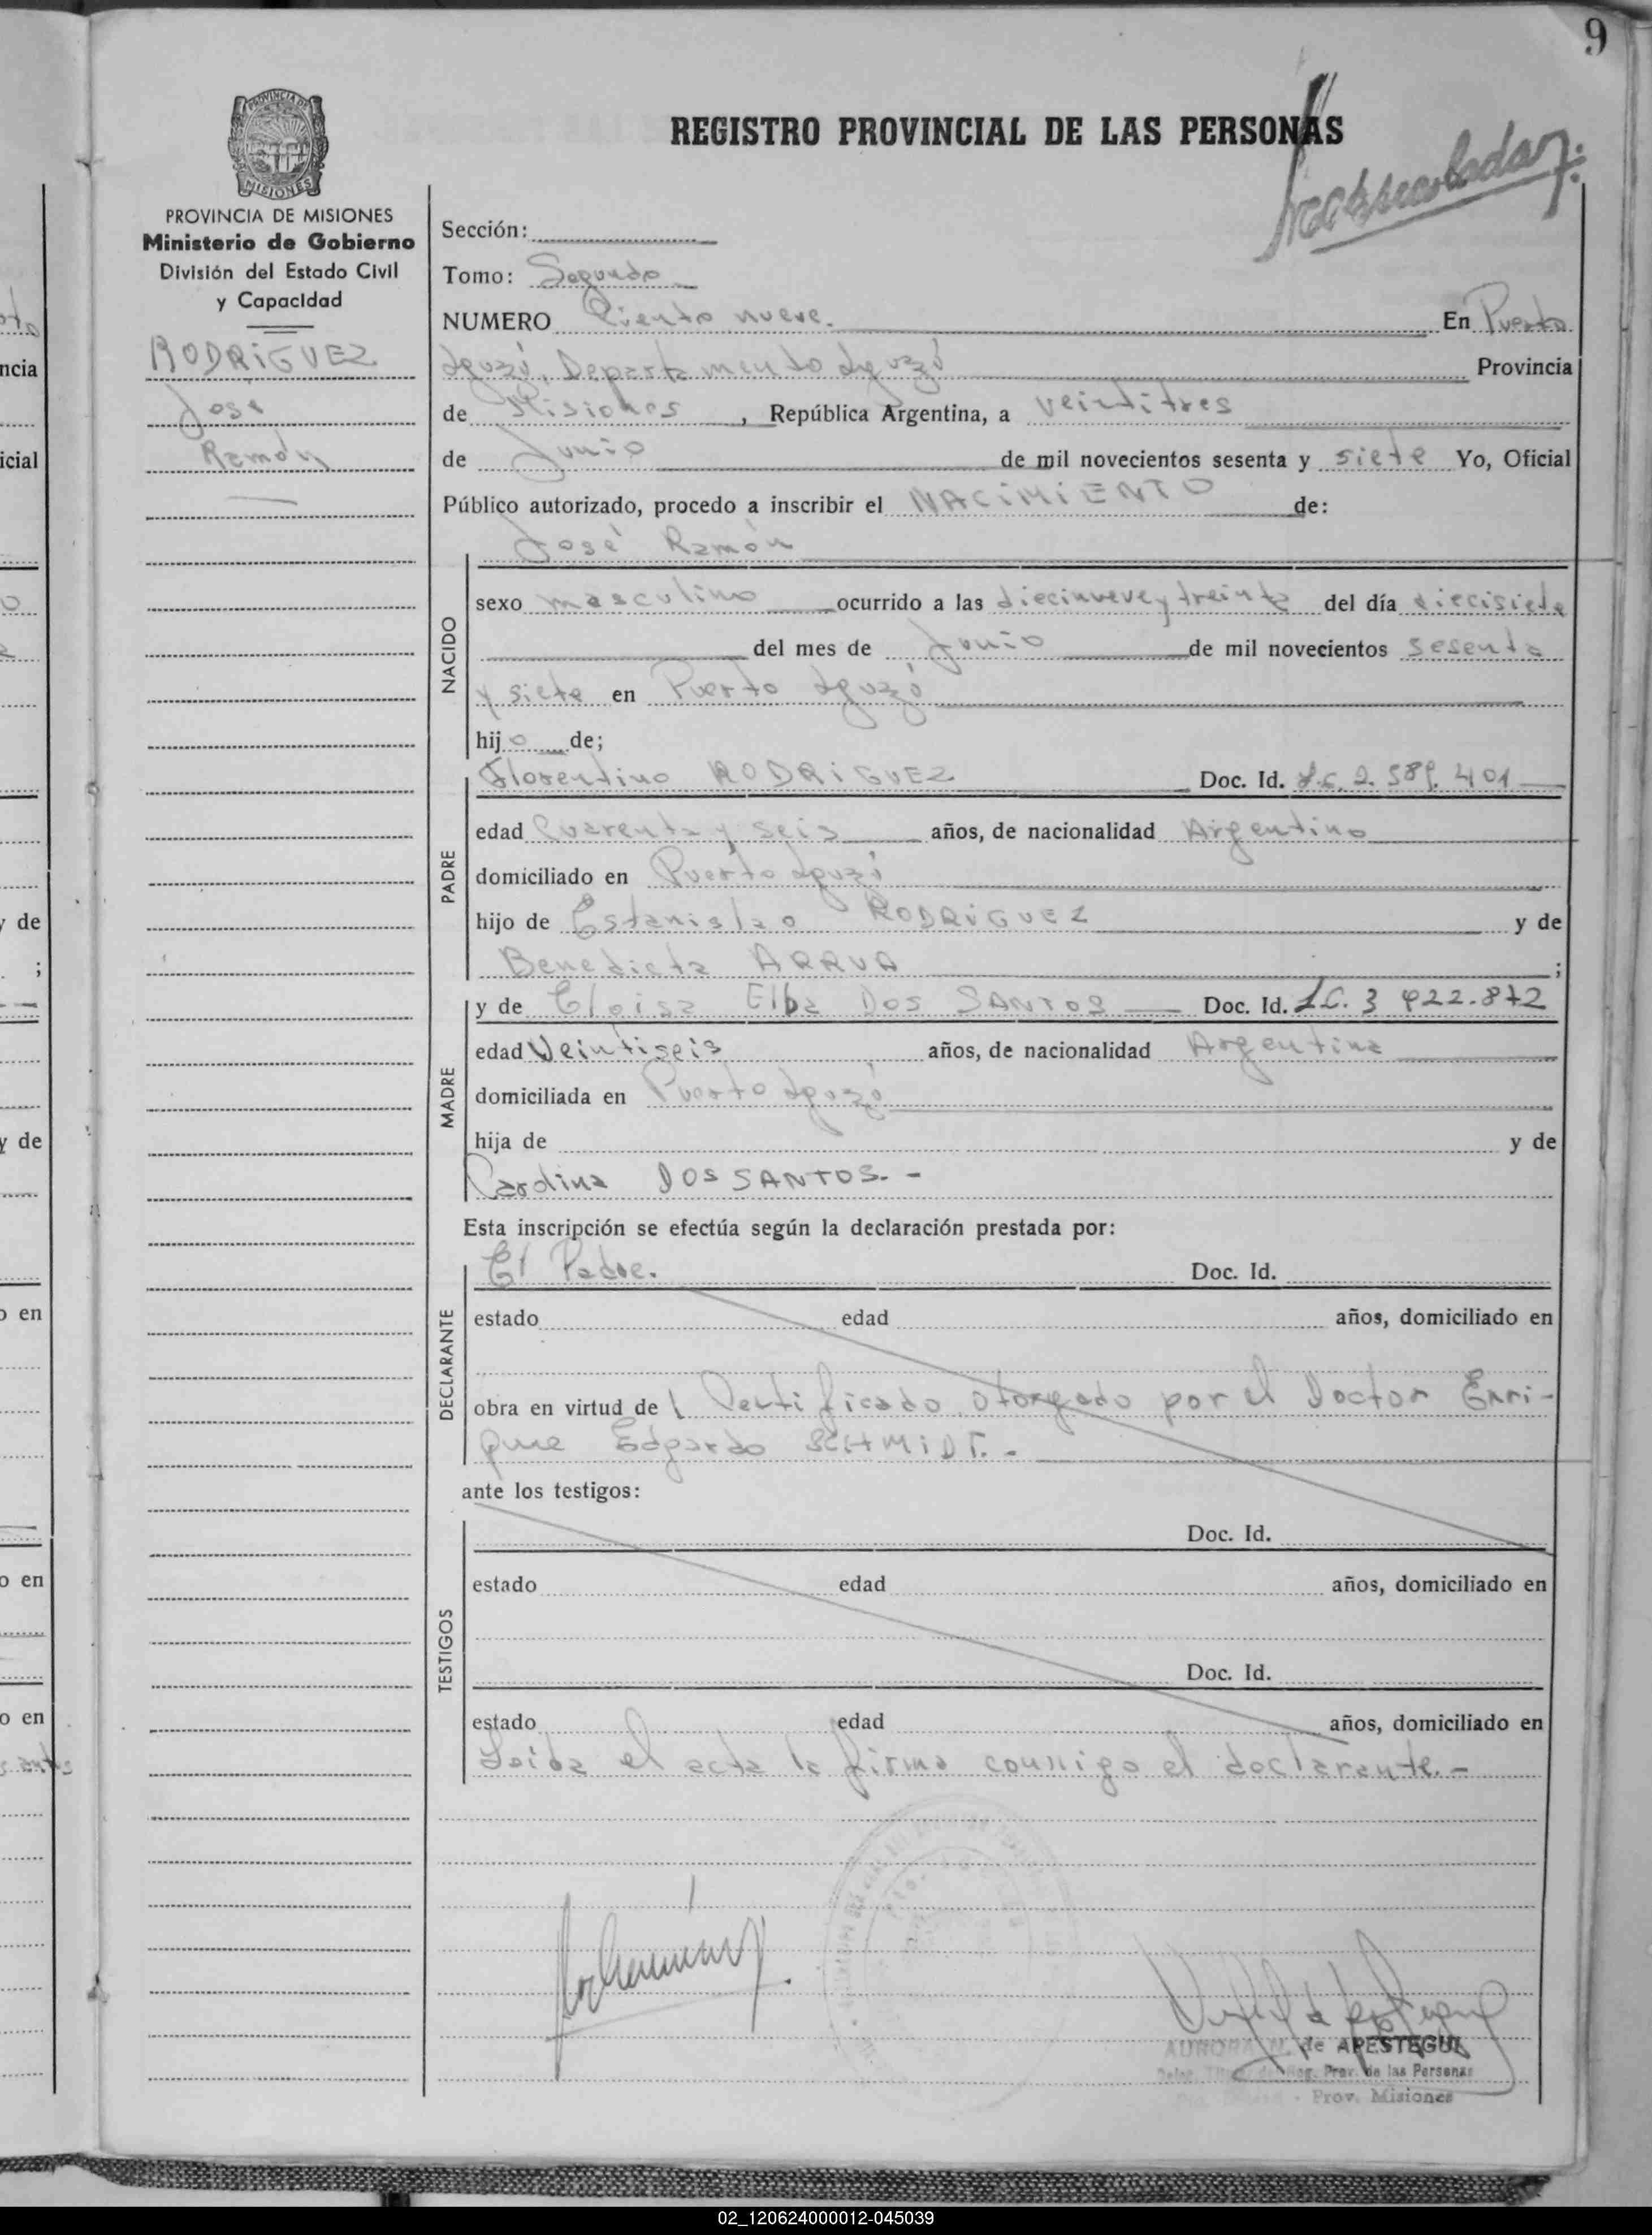 9
REGISTRO PROVINCIAL DE LAS PERSONAS
PROVINCIA DE
MISIONES
PROVINCIA DE MISIONES
Ministerio de Gobierno
División del Estado Civil
y Capacidad
RODRIGUEZ
José
Ramón
Sección:
Tomo: Segundo
NUMERO Ciento nueve. En Puerto
Iguazú, Departamento Iguazú Provincia
de Misiones, República Argentina, a veintitres
de Junio de mil novecientos sesenta y siete Yo, Oficial
Público autorizado, procedo a inscribir el NACIMIENTO de:
José Ramón
NACIDO
sexo masculino ocurrido a las diecinueve y treinta del día diecisiete
del mes de Junio de mil novecientos sesenta
y siete en Puerto Iguazú
hijo de;
Florentino RODRIGUEZ Doc. Id. 2.589.401
PADRE
edad Cuarenta y seis años, de nacionalidad Argentino
domiciliado en Puerto Iguazú
hijo de Estanislao RODRIGUEZ y de
Benedicta ARRUA ;
y de Eloisa Elba DOS SANTOS Doc. Id. L.C. 3 922.872
MADRE
edad Veintiseis años, de nacionalidad Argentina
domiciliada en Puerto Iguazú
hija de y de
DOS SANTOS.-
Esta inscripción se efectúa según la declaración prestada por:
El Padre. Doc. Id.
DECLARANTE
estado edad años, domiciliado en
obra en virtud de Certificado otorgado por el Doctor Enri-
que Edgardo SCHMIDT.-
ante los testigos:
Doc. Id.
TESTIGOS
estado edad años, domiciliado en
Doc. Id.
estado edad años, domiciliado en
Leida el acta la firma conmigo el declarante.-
AURORA de APESTEGUI
Reg. Prov. de las Personas
- Prov. Misiones
ncia
icial
y de
;
y de
o en
o en
o en
02_120624000012-045039